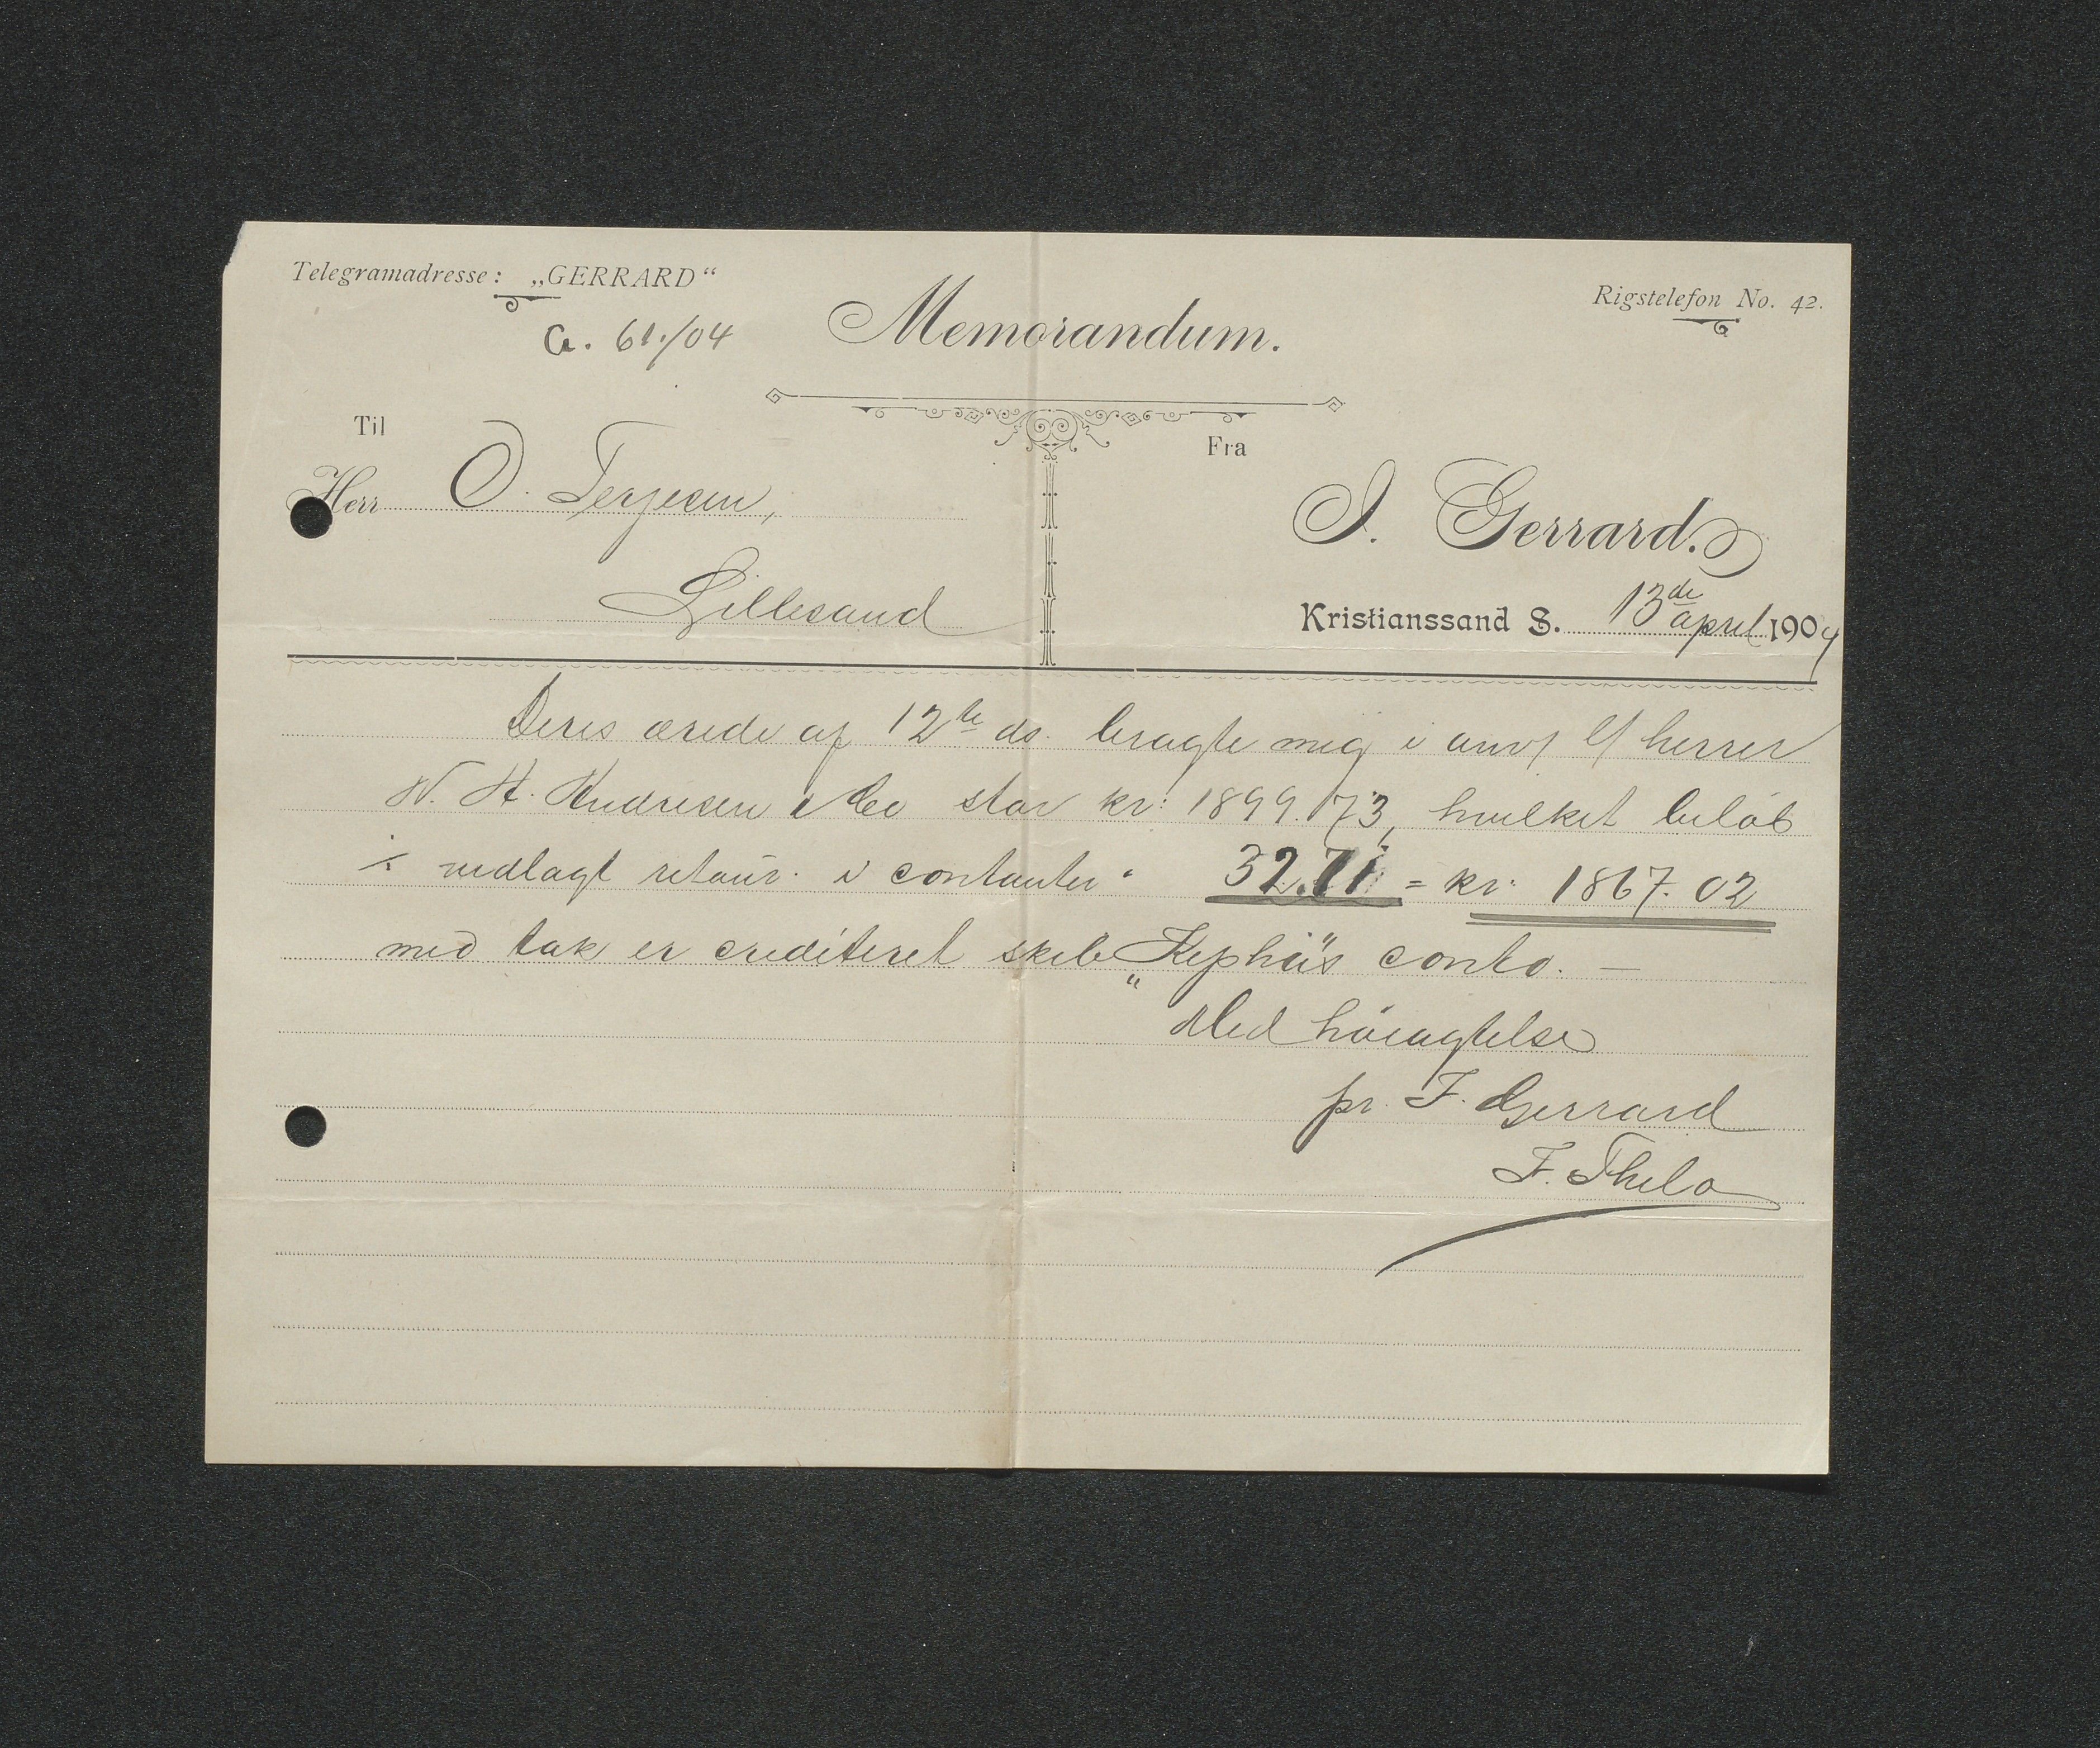 Telegramadresse: „GERRARD“
Rigstelefon No. 42.
Memorandum.
61./04
Til
Fra
Herr O. Terjesen,
I. Gerrard.
Lillesand
Kristianssand S. 13de april 1904
Deres ærede af 12te ds. bragte mig i anv/ herrer
N. A. Andresen & Co stor kr: 1899.73, hvilket beløb
÷ vedlagt retour i contanter " 32.71 = kr: 1867.02
med tak er crediteret skib „Kephas“ conto. —
Med høiagtelse
pr. I. Gerrard
F. Thilo